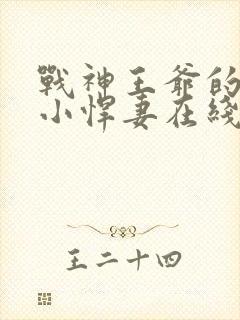 戰神王爺的
小悍妻在綫
王二十四